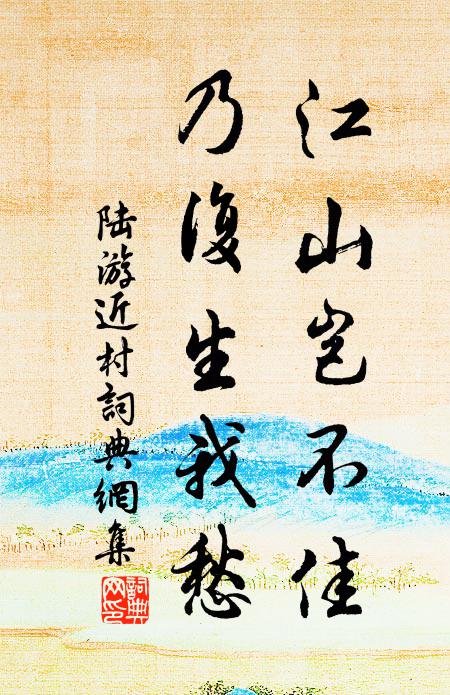 江山岂不佳
乃復生我愁
陆游近村詞典網集
詞典網印